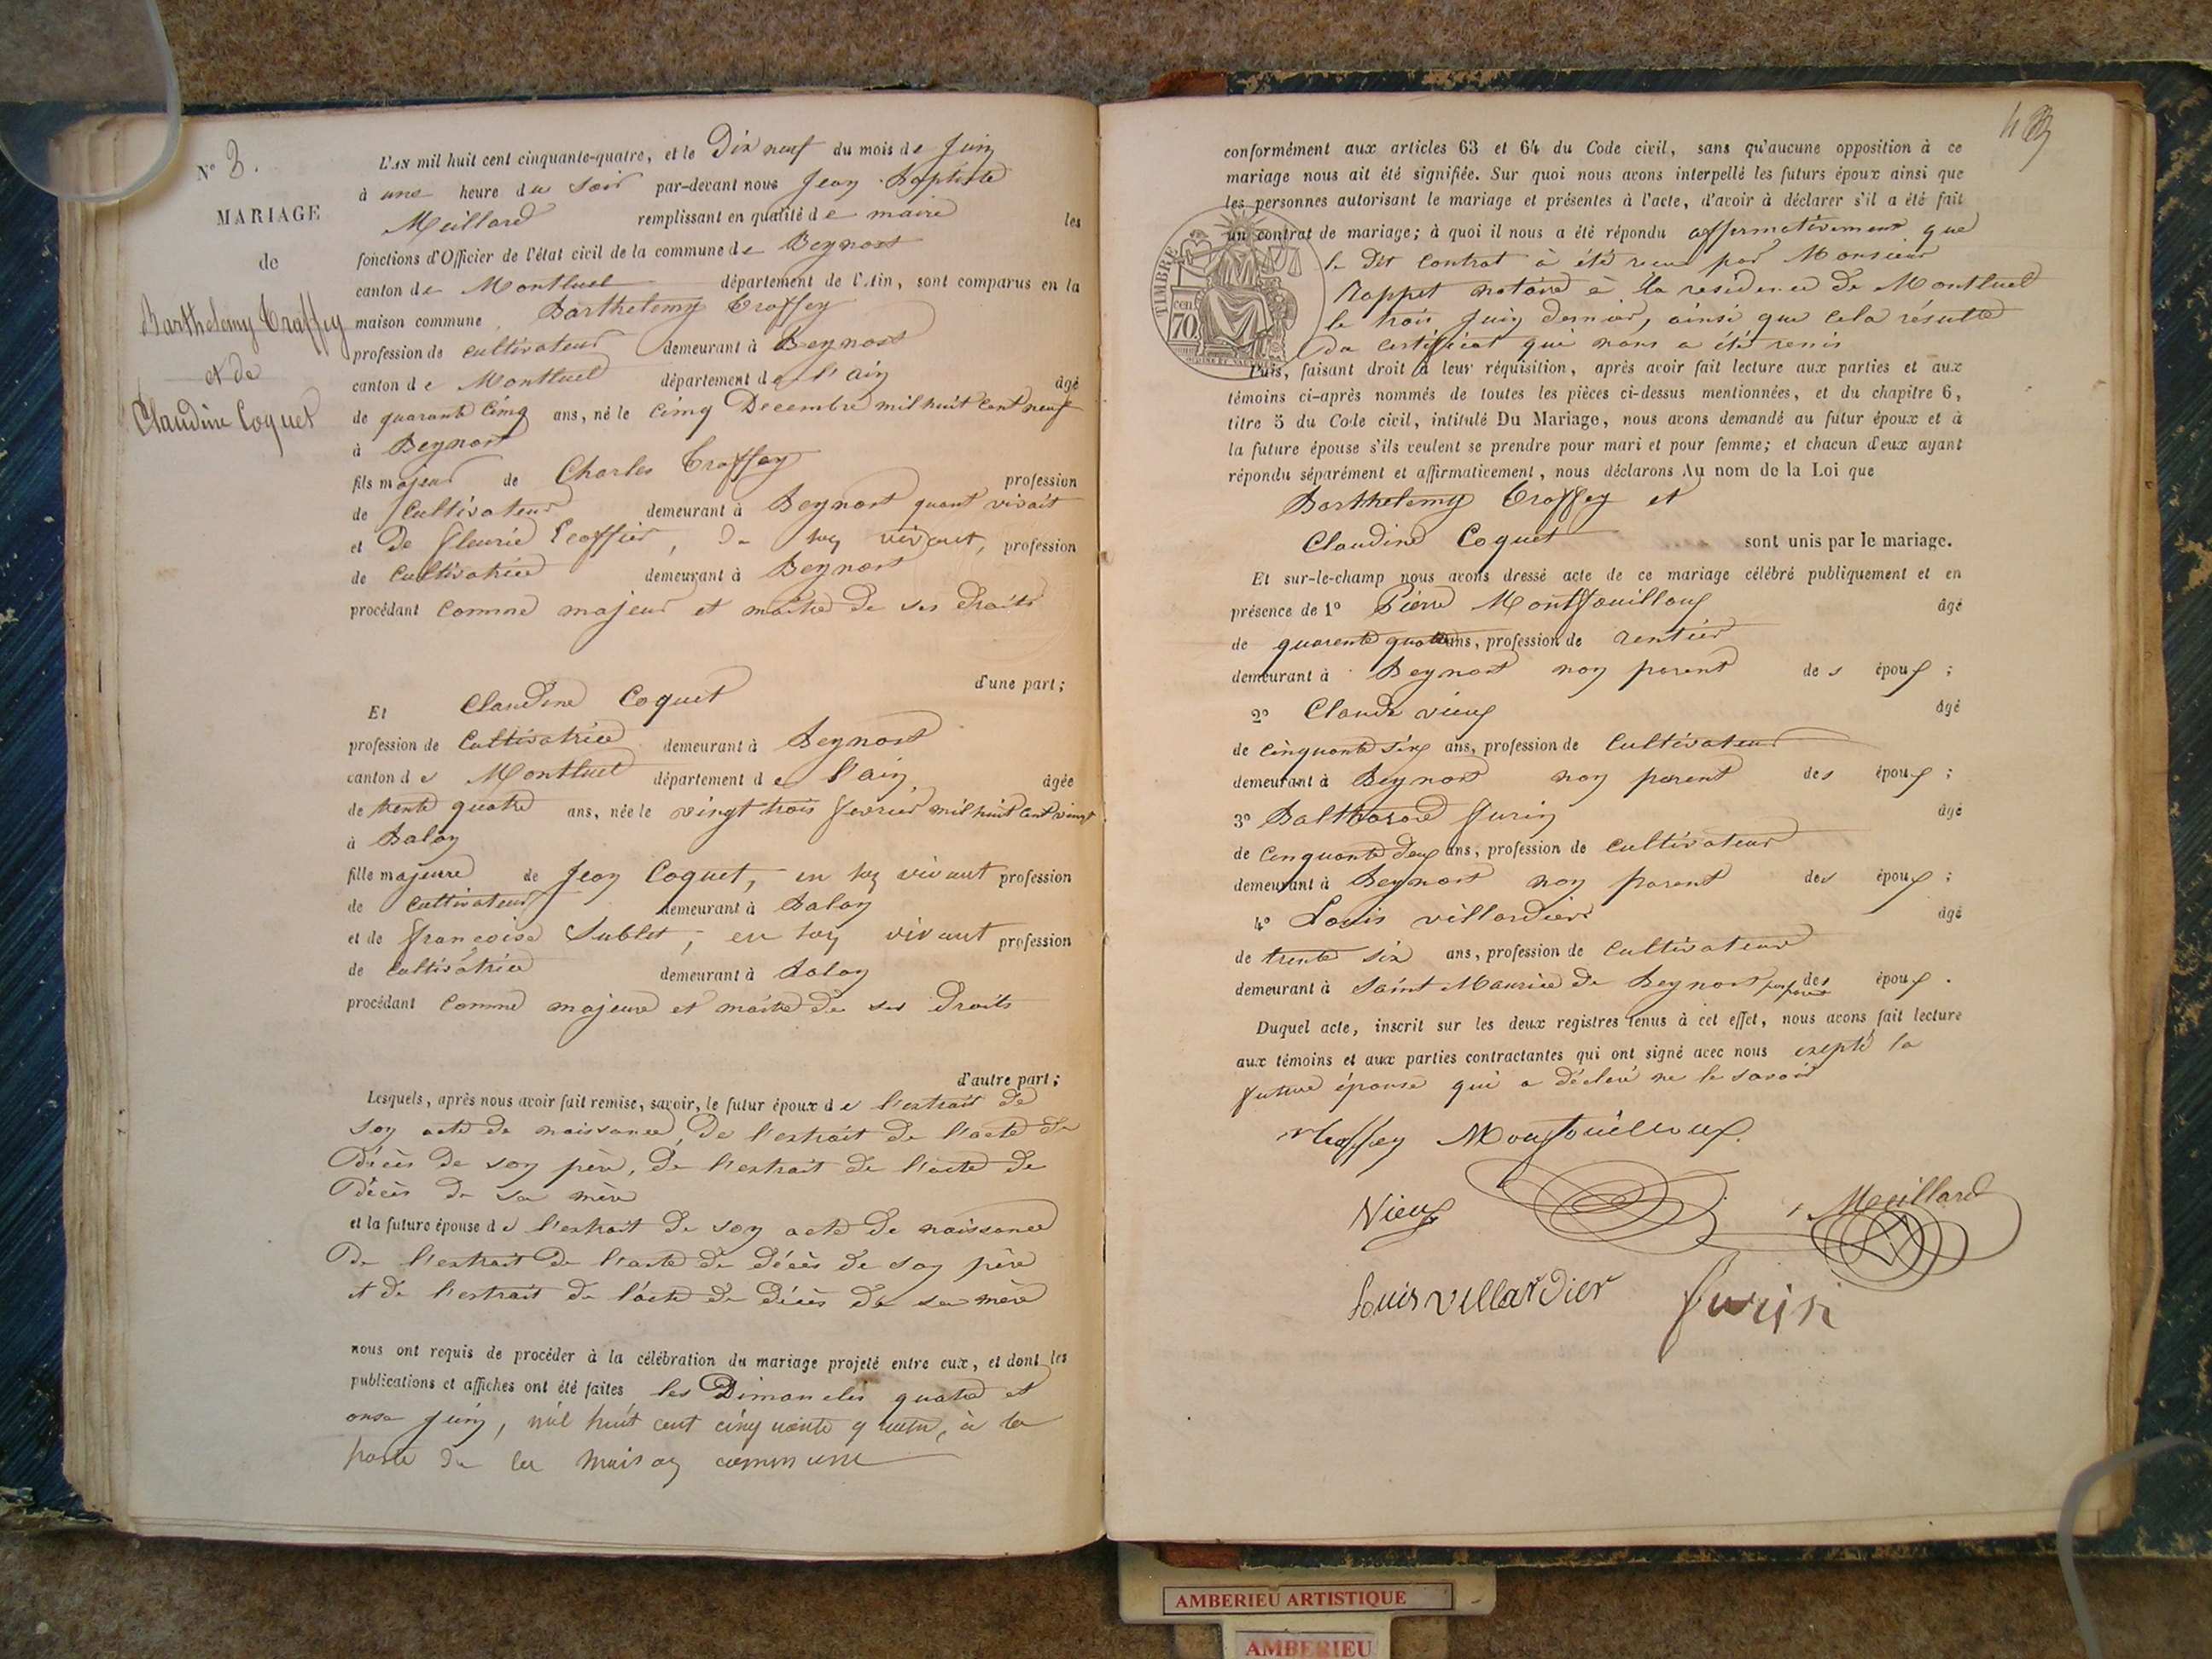 N° 3.
MARIAGE
de
Barthelemy Traffey
et de
Claudine Coquet
L'AN mil huit cent cinquante-quatre, et le Dix neuf du mois de Juin
à une heure du soir par-devant nous Jean Baptiste
Meillard remplissant en qualité de maire les
fonctions d'Officier de l'état civil de la commune de Beynost
canton de Montluel département de l'Ain, sont comparus en la
maison commune Barthelemy Traffey
profession de cultivateur demeurant à Beynost
canton de Montluel département de l'ain âgé
de quarante cinq ans, né le cinq Decembre mil huit cent neuf
à Beynost
fils majeur de Charles Traffey profession
de Cultivateur demeurant à Beynost quant vivait
et de fleurie Ecoffier, de son vivant, profession
de Cultivatrice demeurant à Beynost
procédant comme majeur et maitre de ses droits
d'une part;
Et Claudine Coquet
profession de Cultivatrice demeurant à Beynost
canton de Montluel département de l'ain, âgée
de trente quatre ans, née le vingt trois fevrier mil huit cent vingt
à Balan
fille majeure de Jean Coquet, en son vivant profession
de cultivateur demeurant à Balan
et de françoise Sublet, en son vivant profession
de Cultivatrice demeurant à Balan
procédant comme majeure et maitre de ses droits
d'autre part;
Lesquels, après nous avoir fait remise, savoir, le futur époux de l'extrait de
son acte de naissance, de l'extrait de l'acte de
Décès de son père, de l'extrait de l'acte de
Décès de sa mère
et la future épouse de l'extrait de son acte de naissance
De l'extrait de l'acte de décès de son père
et de l'extrait de l'acte de décès de sa mère
nous ont requis de procéder à la célébration du mariage projeté entre eux, et dont les
publications et affiches ont été faites les Dimanches quatre et
onze juin, mil huit cent cinquante quatre, à la
porte de la maison commune
conformément aux articles 63 et 64 du Code civil, sans qu'aucune opposition à ce
mariage nous ait été signifiée. Sur quoi nous avons interpellé les futurs époux ainsi que
les personnes autorisant le mariage et présentes à l'acte, d'avoir à déclarer s'il a été fait
un contrat de mariage; à quoi il nous a été répondu affirmativement que
le dit contrat à été recu par Monsieur
Rappet notaire à la residence de Montluel
le trois juin dernier, ainsi que cela résulte
du certificat qui nous a été remis
TIMBRE
cen
70
Puis, faisant droit à leur réquisition, après avoir fait lecture aux parties et aux
témoins ci-après nommés de toutes les pièces ci-dessus mentionnées, et du chapitre 6,
titre 5 du Code civil, intitulé Du Mariage, nous avons demandé au futur époux et à
la future épouse s'ils veulent se prendre pour mari et pour femme; et chacun d'eux ayant
répondu séparément et affirmativement, nous déclarons Au nom de la Loi que
Barthelemy Traffey et
Claudine Coquet sont unis par le mariage.
Et sur-le-champ nous avons dressé acte de ce mariage célébré publiquement et en
présence de 1° Pierre Montfouilloux âgé
de quarente quatre ans, profession de rentier
demeurant à Beynost non parent des époux;
2° Claude vieux âgé
de cinquante six ans, profession de Cultivateur
demeurant à Beynost non parent des époux;
3° Balthasard Jurin âgé
de cinquante deux ans, profession de cultivateur
demeurant à Beynost non parent des époux;
4° Louis villardier âgé
de trente six ans, profession de Cultivateur
demeurant à Saint Maurice de Beynost des époux.
Duquel acte, inscrit sur les deux registres tenus à cet effet, nous avons fait lecture
aux témoins et aux parties contractantes qui ont signé avec nous exepté la
future épouse qui a déclaré ne le savoir
Traffey Monfouilloux
Vieux Meillard
Louis villardier Jurin
AMBERIEU ARTISTIQUE
AMBERIEU